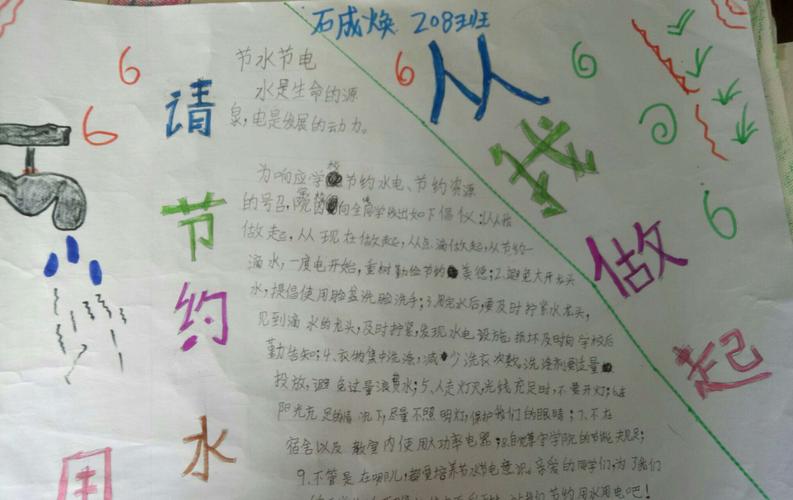 石成焕 208班
请节约用水
从我做起
节水节电
水是生命的源
泉,电是发展的动力。
为响应学校节约水电、节约资源
的号召,向全同学提出如下倡仪:1.从我
做起,从现在做起,从点滴做起,从节约一
滴水,一度电开始,重树勤俭节约美德;2.避免大开龙头
水,提倡使用脸盆洗脸洗手;3.用完水后要及时拧紧水龙头,
见到滴水的龙头,及时拧紧,发现水电设施损坏及时向学校后
勤告知;4.衣物集中洗涤,减少洗衣次数,洗涤剂要适量
投放,避免过量浪费水;5、人走灯灭,光线充足时,不要开灯;6.在
阳光充足的情况下,尽量不照明灯,保护我们的眼睛;7、不在
宿舍以及教室内使用大功率电器;8.自觉遵守学院的节能
9.不管是在哪儿,都要培养节水节电意识。亲爱的同学们,为了我们
我们节约用水用电吧!